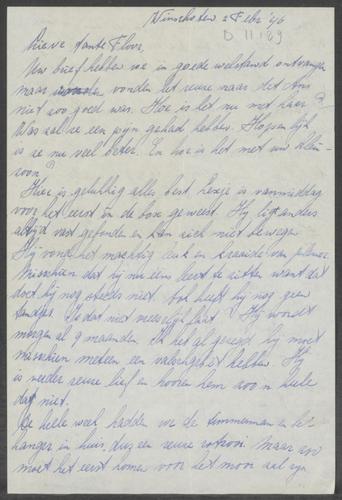 Winschoten 2 Febr '46
D 11189
Lieve tante Flour,
Uw brief hebben we in goede welstand ontvangen
maar vonden het reuze naar dat Ans
niet zoo goed was. Hoe is het nu met haar?
Wat zal ze een pijn gehad hebben. Hopenlijk
is ze nu veel beter. En hoe is het met uw klein-
zoon?
Hier is gelukkig alles best. is vanmiddag
voor het eerst in de box geweest. Hij ligt anders
altijd vast gebonden en kan zich niet bewegen
Hij vond het machtig leuk en kraaide van pleizier
Misschien dat hij nu eens leert te zitten want dat
doet hij nog steeds niet. Ook heeft hij nog geen
tandjes. Is dat niet vreeselijk laat? Hij wordt
morgen al 9 maanden. Ik heb al gezegd, hij moet
misschien meteen een valschgebit hebben. Hij
is verder reuze lief en hooren hem zoo'n heele
dag niet.
De heele week hadden we de timmerman en be-
hanger in huis, dus een reuze rotzooi. Maar zoo
moet het eerst komen voor het mooi zal zijn